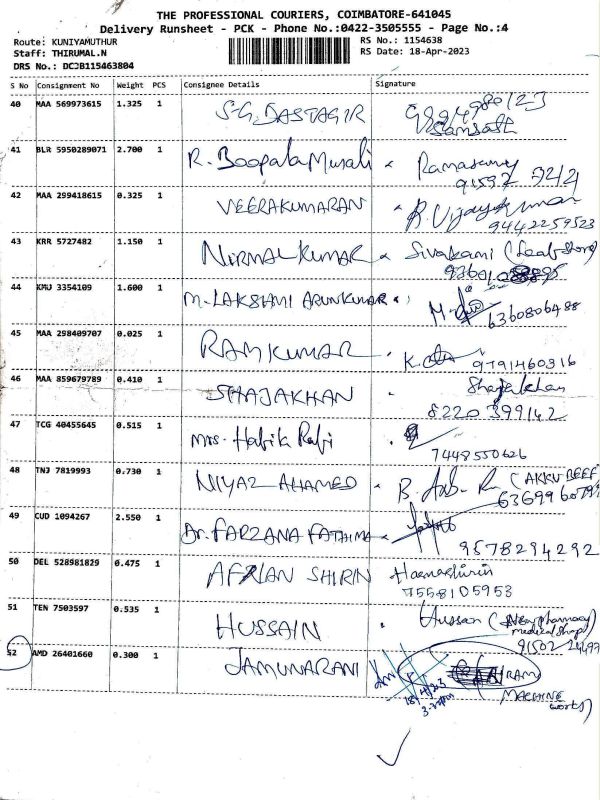 THE PROFESSIONAL COURIERS, COIMBATORE-641045
Delivery Runsheet - PCK - Phone No.:0422-3505555 - Page No.:4
Route: KUNIYAMUTHUR
RS No.: 1154638
Staff: THIRUMAL.N
RS Date: 18-Apr-2023
DRS No.: DCJB115463804
S No Consignment No Weight PCS Consignee Details Signature
40 MAA 569973615 1.325 1 S.G. DASTAGIR
Samsath
41 BLR 5950289071 2.700 1 R. Boopala Murali Ramasamy
42 MAA 299418615 0.325 1 VEERAKUMARAN R. Vijayakumar
9442259523
43 KRR 5727482 1.150 1 NIRMAL KUMAR Sivakami
44 KMU 3354109 1.600 1 M. LAKSHMI ARUNKUMAR
6360806488
45 MAA 298409707 0.025 1 RAMKUMAR
9791460316
46 MAA 859679789 0.410 1 SHAJAKHAN Shajakhan
8220399142
47 TCG 40455645 0.515 1 Mrs. Habik Rabi
7448550626
48 TNJ 7819993 0.730 1 NIYAZ AHAMED (AKKU BEEF
49 CUD 1094267 2.550 1 Dr. FARZANA FATHIMA
9578294292
50 DEL 528981829 0.475 1 AFRIAN SHIRIN
7558105953
51 TEN 7503597 0.535 1 HUSSAIN Hussan
medical shop)
52 AMD 26401660 0.300 1 JAMUNARANI
18/4/23
MACHINE
works)